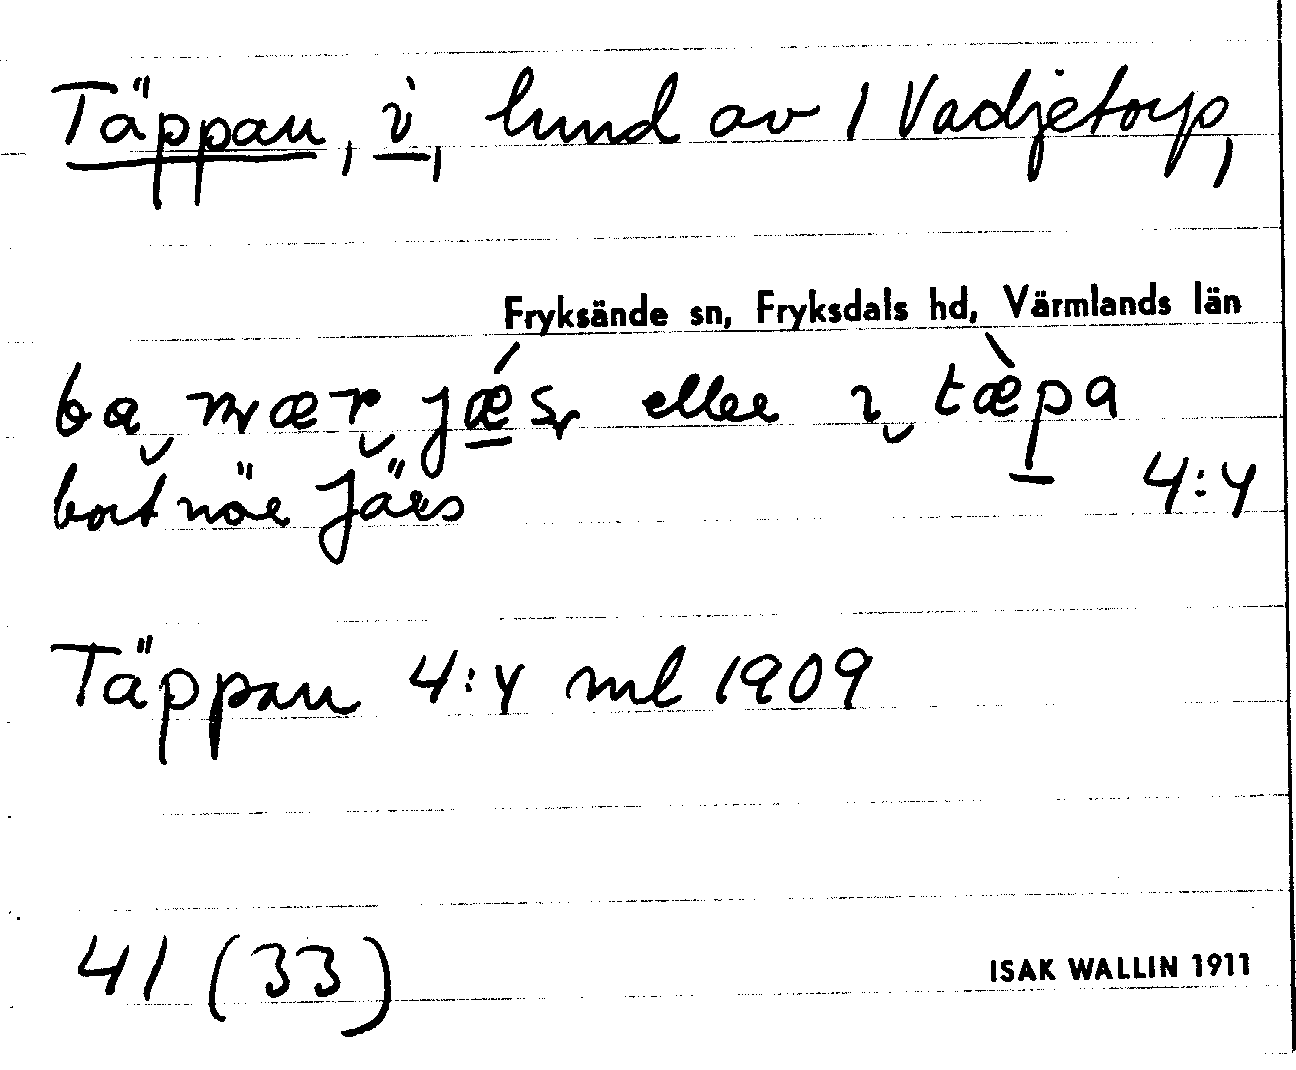 Täppan, i, lund av 1 Vadjetorp,
Fryksände sn, Fryksdals hd, Värmlands län
eller ı tæ̀pa
bortnör Järs 4:4
Täppan 4:4 ml 1909
41 (33) ISAK WALLIN 1911